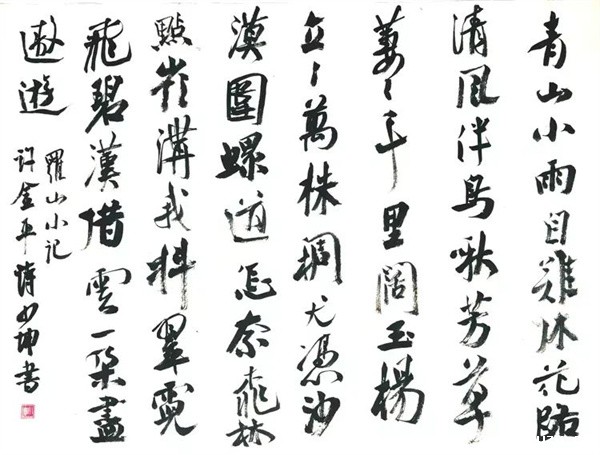 青山小雨目難休花路
清風伴鳥啾芳草
萋〻千里闊玉楊
立〻萬株稠尤憑沙
漠圍螺道怎奈林
點溝我料翠霓
飛碧漢借雲一朵盡
遨遊
羅山小記
許金平詩坤書